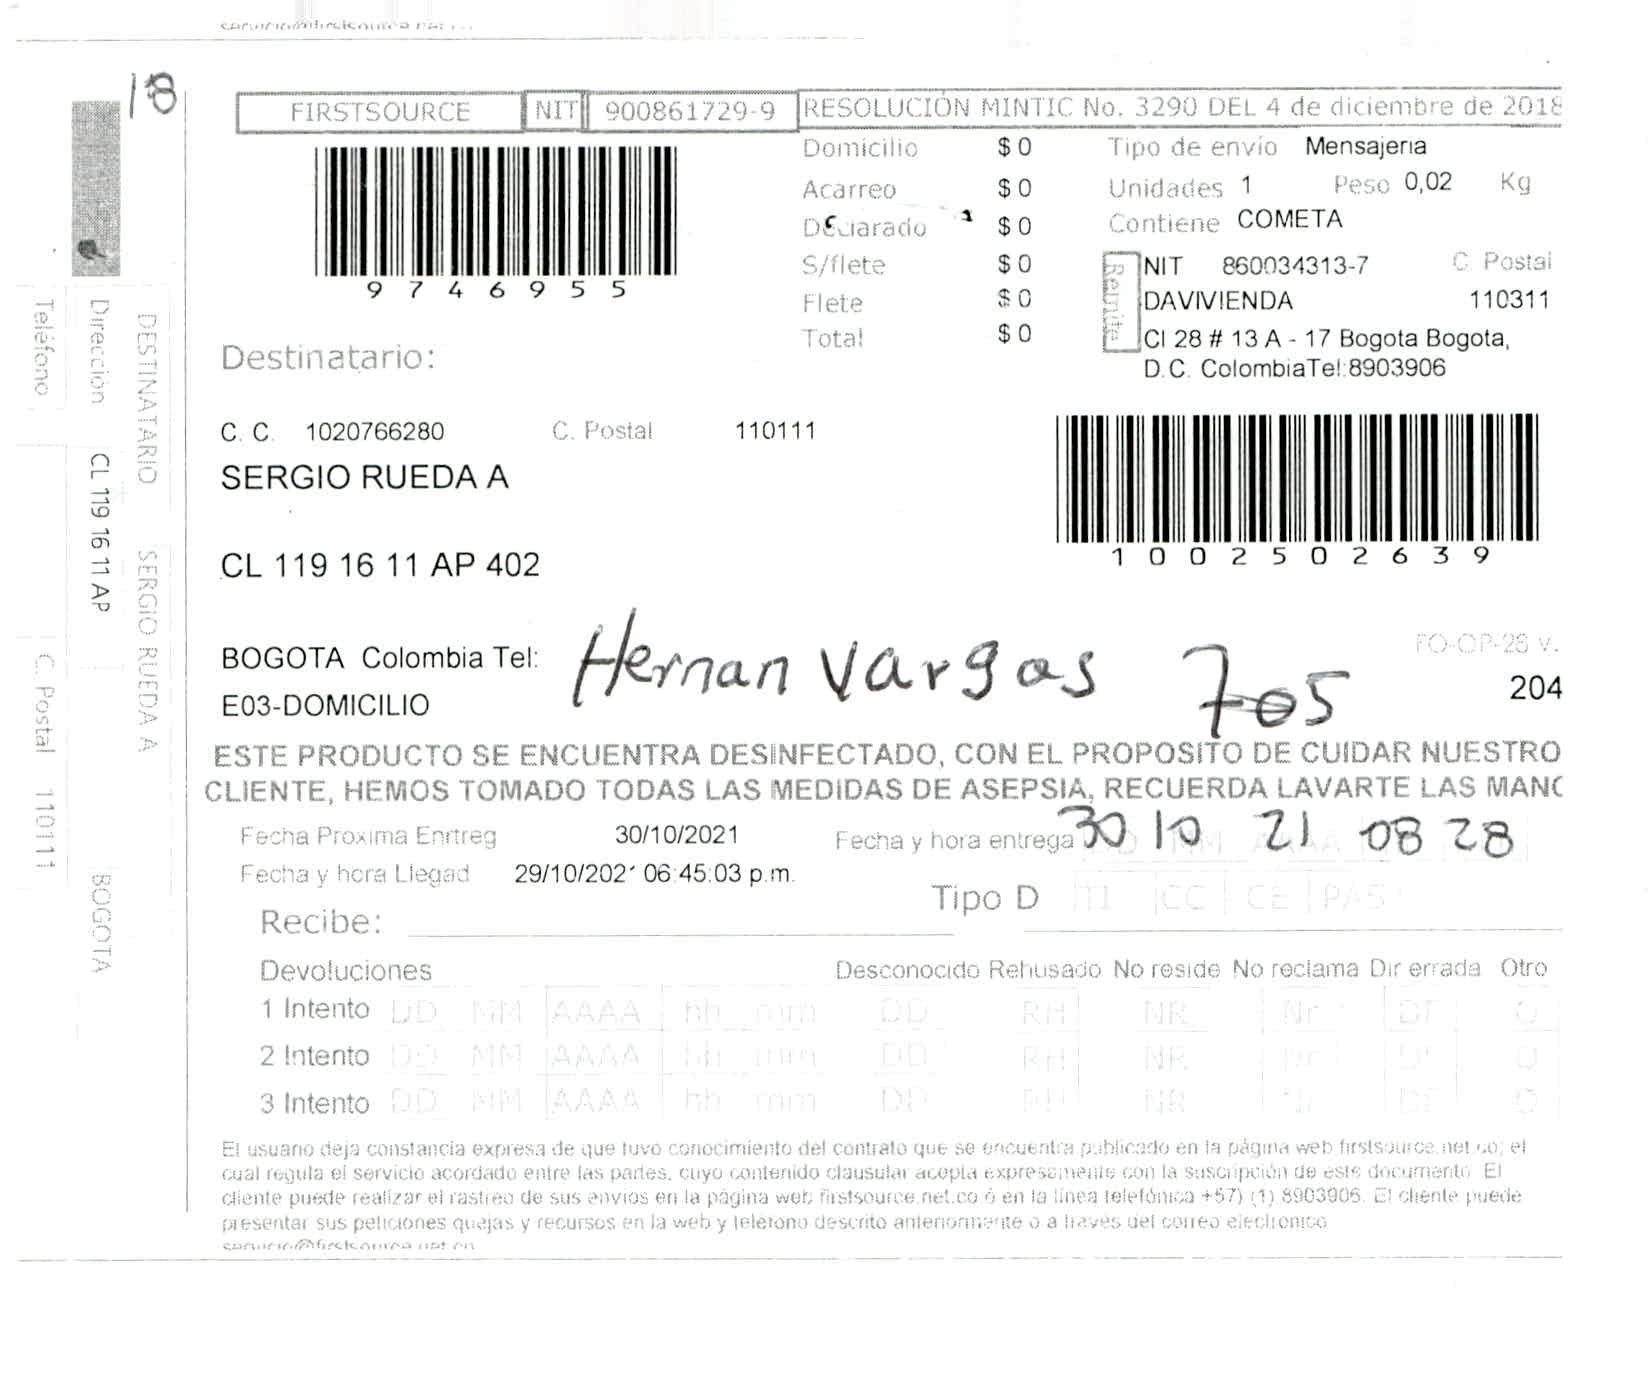 18
FIRSTSOURCE NIT 900861729-9 RESOLUCIÓN MINTIC No. 3290 DEL 4 de diciembre de 2018
9746955
Domicilio $ 0
Acarreo $ 0
Declarado $ 0
S/flete $ 0
Flete $ 0
Total $ 0
Tipo de envío Mensajeria
Unidades 1 Peso 0,02 Kg
Contiene COMETA
Remite
NIT 860034313-7 C. Postal
DAVIVIENDA 110311
Cl 28 # 13 A - 17 Bogota Bogota,
D.C. ColombiaTel:8903906
Destinatario:
C. C. 1020766280 C. Postal 110111
SERGIO RUEDA A
1002502639
CL 119 16 11 AP 402
BOGOTA Colombia Tel:
Hernan Vargas 705
FO-OP-28 V.
204
E03-DOMICILIO
ESTE PRODUCTO SE ENCUENTRA DESINFECTADO, CON EL PROPOSITO DE CUIDAR NUESTRO
CLIENTE, HEMOS TOMADO TODAS LAS MEDIDAS DE ASEPSIA, RECUERDA LAVARTE LAS MANO
Fecha Proxima Enrtreg 30/10/2021 Fecha y hora entrega 30 10 21 08 28
Fecha y hora Llegad 29/10/2021 06:45:03 p.m.
Tipo D TI CC CE PAS
Recibe:
Devoluciones Desconocido Rehusado No reside No reclama Dir errada Otro
1 Intento DD MM AAAA hh mm DD RH NR Nr DE O
2 Intento DD MM AAAA hh mm DD RH NR Nr DE O
3 Intento DD MM AAAA hh mm DD RH NR Nr DE O
El usuario deja constancia expresa de que tuvo conocimiento del contrato que se encuentra publicado en la página web firstsource.net.co; el
cual regula el servicio acordado entre las partes, cuyo contenido clausular acepta expresamente con la suscripción de este documento. El
cliente puede realizar el rastreo de sus envios en la página web firstsource.net.co ó en la línea telefónica +57) (1) 8903906. El cliente puede
presentar sus peticiones quejas y recursos en la web y teléfono descrito anteriormente o a través del correo electronico
servicio@firstsource.net.co
DESTINATARIO SERGIO RUEDA A
Dirección CL 119 16 11 AP BOGOTA
Teléfono C. Postal 110111